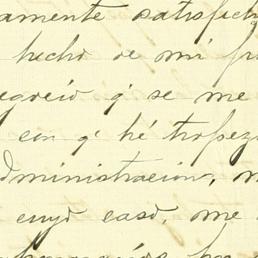 amente satisfech
hecho de mi pr
egocio q' se me
con q' hé tropez
dministracion, m
cuyo caso, me